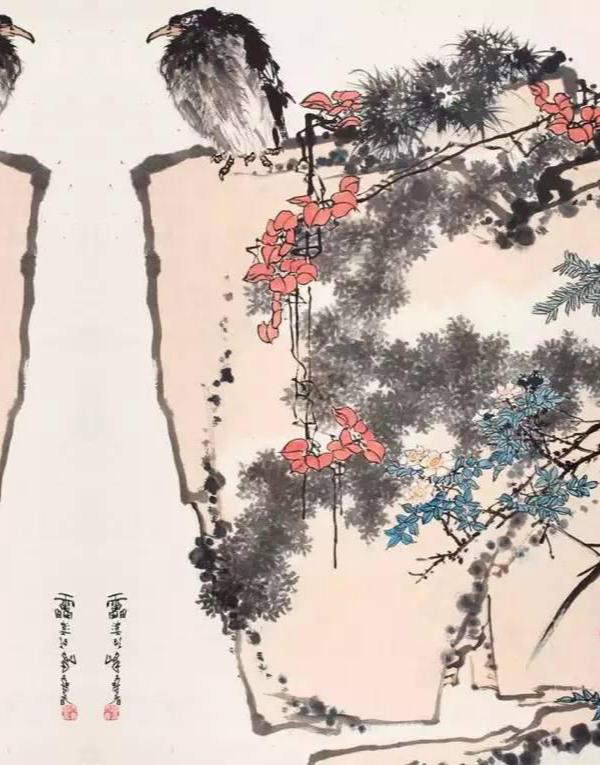 雷婆頭峰壽者
雷婆頭峰壽者